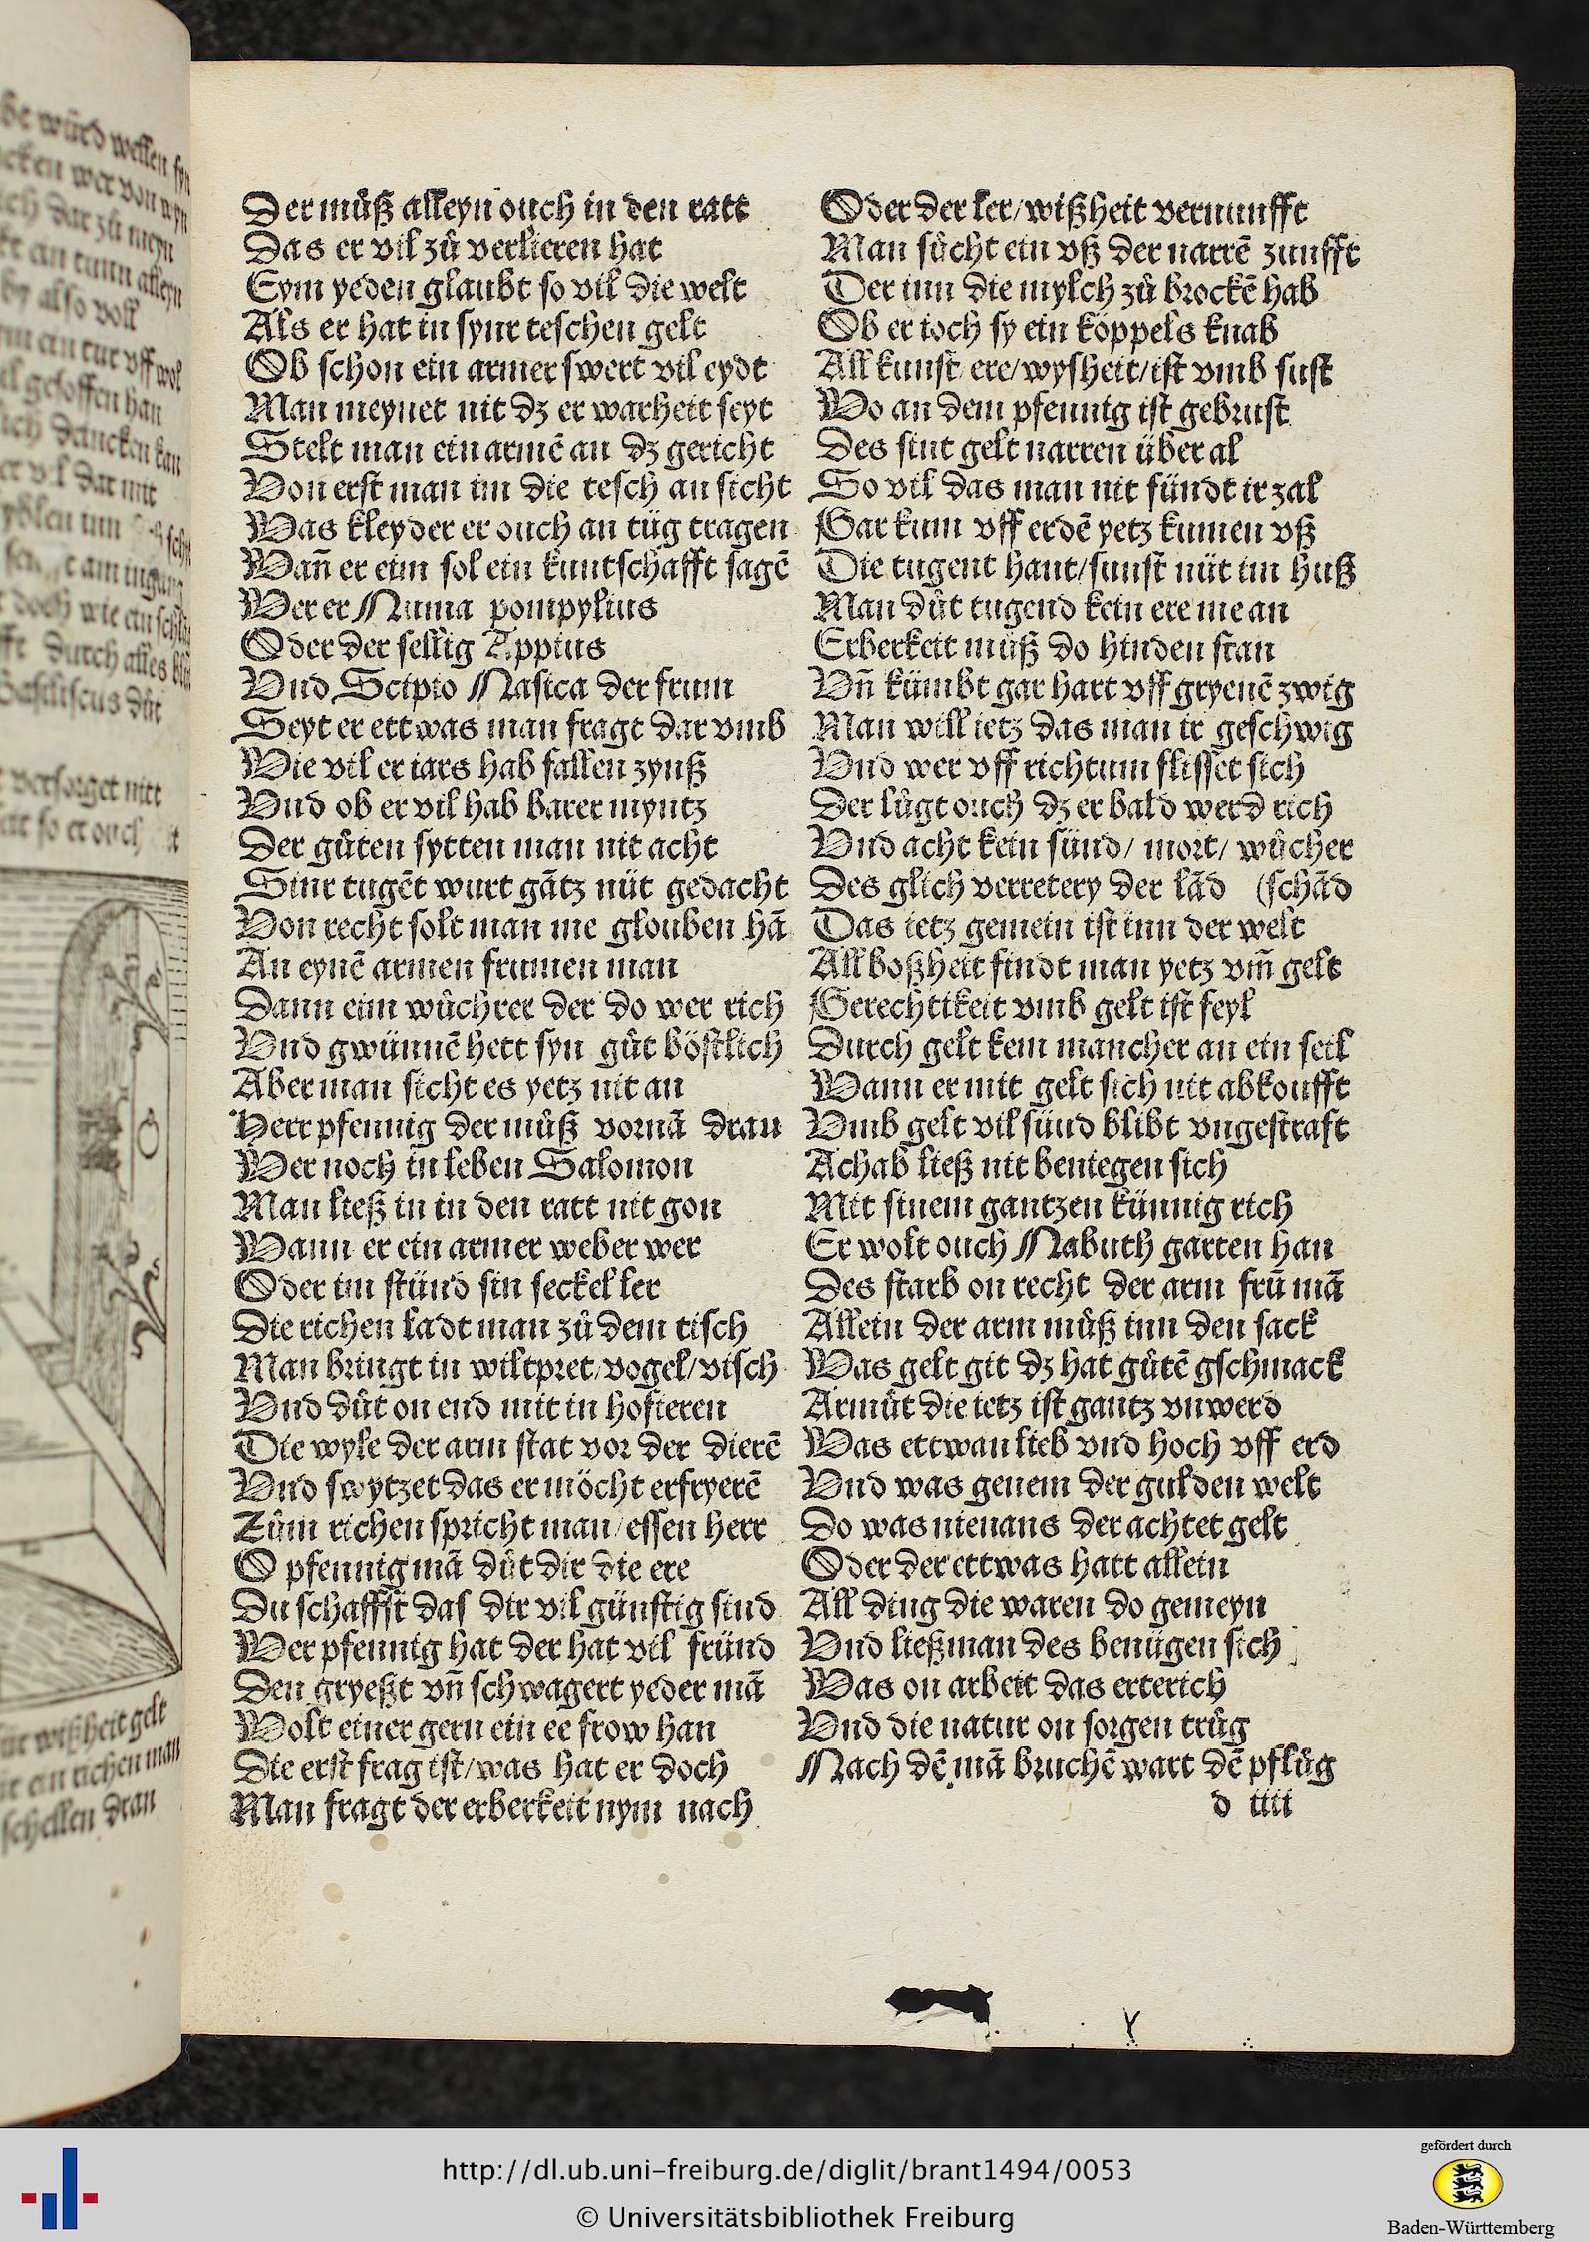 Der můß alleyn ouch in den ratt
Das er vil zů verlieren hat
Eym yeden glaubt so vil die welt
Als er hat in synr teschen gelt
Ob schon ein armer swert vil eydt
Man meynet nit dz er warheit seyt
Stelt man ein armē an dz gericht
Von erst man im die tesch an sicht
Was kleyder er ouch an tüg tragen
Wañ er eim sol ein kuntschafft sagē
Wer er Numa pompylius
Oder der selbig Appius
Vnd Scipio Nasica der frum
Seyt er ettwas man fragt dar vmb
Wie vil er iars hab fallen zynß
Vnd ob er vil hab barer myntz
Der gůten sytten man nit acht
Sinr tugēt wurt gātz nüt gedacht
Von recht solt man me glouben hā
An eynē armen frumen man
Dann eim wůchrer der do wer rich
Vnd gwünnē hett syn gůt böslich
Aber man sicht es yetz nit an
Herr pfennig der můß vornā dran
Wer noch in leben Salomon
Man ließ in in den ratt nit gon
Wann er ein armer weber wer
Oder im stünd sin seckel ler
Die richen ladt man zů dem tisch
Man bringt in wiltpret/vogel/visch
Vnd důt on end mit in hofieren
Die wyle der arm stat vor der dierē
Vnd swytzet das er möcht erfryerē
Zům richen spricht man/essen herr
O pfennig mā důt dir die ere
Du schaffst das dir vil günstig sind
Wer pfennig hat der hat vil fründ
Den gryeßt vñ schwagert yeder mā
Wolt einer gern ein ee frow han
Die erst frag ist/was hat er doch
Man fragt der erberkeit nym nach
Oder der ler/wißheit vernunfft
Man sůcht ein vß der narrē zunfft
Der inn die mylch zů brockē hab
Ob er ioch sy ein köppels knab
All kunst ere/wysheit/ist vmb sust
Wo an dem pfennig ist gebrust
Des sint gelt narren über al
So vil das man nit fündt ir zal
Gar kum vff erdē yetz kumen vß
Die tugent hant/sunst nüt im huß
Man důt tugend kein ere me an
Erberkeit můß do hinden stan
Vñ kümbt gar hart vff gryenē zwig
Man will ietz das man ir geschwig
Vnd wer vff richtum flisset sich
Der lůgt ouch dz er bald werd rich
Vnd acht kein sünd/ mort/ wůcher
Des glich verretery der lād (schād
Das ietz gemein ist inn der welt
All boßheit findt man yetz vm̄ gelt
Gerechtikeit vmb gelt ist feyl
Durch gelt kem mancher an ein seil
Wann er mit gelt sich nit abkoufft
Vmb gelt vil sünd blibt vngestraft
Achab ließ nit beniegen sich
Mit sinem gantzen künnig rich
Er wolt ouch Nabuth garten han
Des starb on recht der arm frū mā
Allein der arm můß inn den sack
Was gelt git dz hat gůtē gschmack
Armůt die ietz ist gantz vnwerd
Was ettwan lieb vnd hoch vff erd
Vnd was genem der gulden welt
Do was nienans der achtet gelt
Oder der ettwas hatt allein
All ding die waren do gemeyn
Vnd ließ man des benügen sich
Was on arbeit das erterich
Vnd die natur on sorgen trůg
Nach dē mā bruchē wart dē pflůg
d iiii
http://dl.ub.uni-freiburg.de/diglit/brant1494/0053
© Universitätsbibliothek Freiburg
gefördert durch
Baden-Württemberg